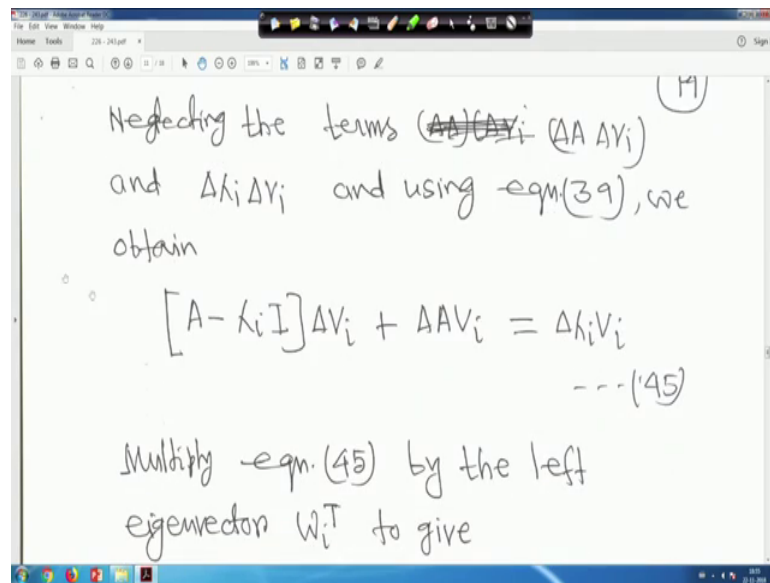 File Edit View Window Help
Home Tools 226 - 243.pdf × Sign
11 / 18
(14)
Neglecting the terms (ΔA ΔVi)
and Δλi ΔVi and using eqn.(39), we
obtain
[A - λi I] ΔVi + ΔA Vi = Δλi Vi
---(45)
Multiply eqn.(45) by the left
eigenvector Wi^T to give